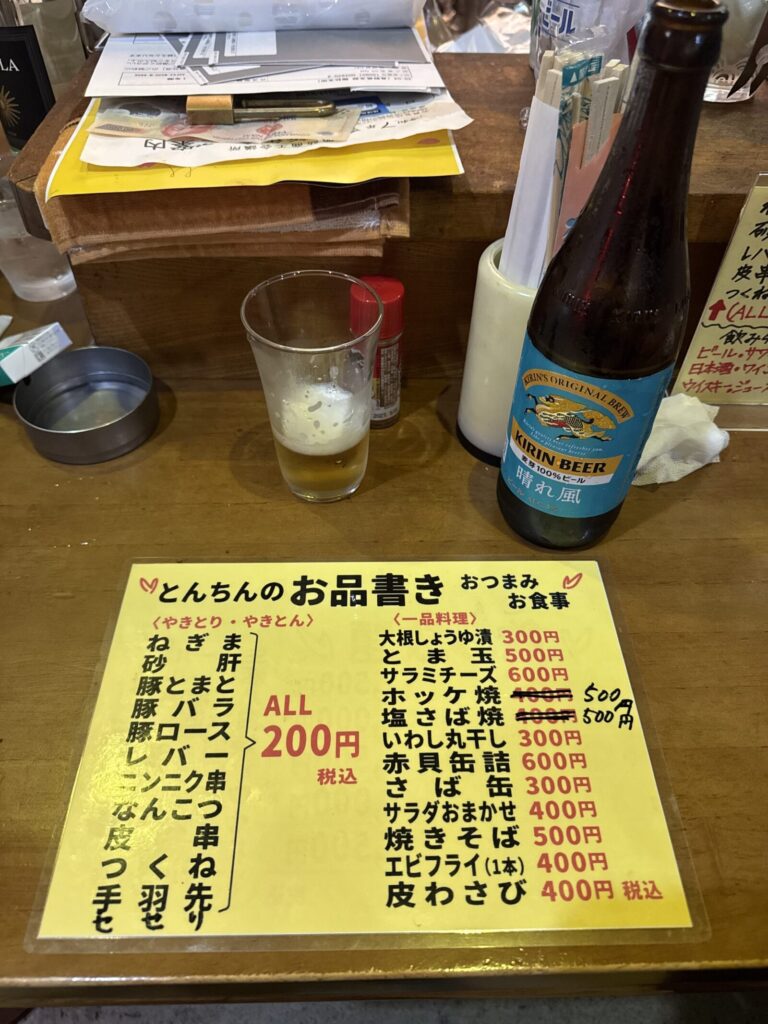 LA
案内
とんちんの お品書き おつまみ お食事
〈やきとり・やきとん〉
ねぎま
砂肝
豚とまと
豚バラ
豚ロース
レバー
ニンニク串
なんこつ
皮串
つくね
手羽先
セセリ
ALL
200円
税込
〈一品料理〉
大根しょうゆ漬 300円
とま玉 500円
サラミチーズ 600円
ホッケ焼 400円 500円
塩さば焼 400円 500円
いわし丸干し 300円
赤貝缶詰 600円
さば缶 300円
サラダおまかせ 400円
焼きそば 500円
エビフライ(1本) 400円
皮わさび 400円 税込
KIRIN'S ORIGINAL BREW
KIRIN BEER
麦芽100%ビール
晴れ風
レバ
皮串
つくね
↑(ALL
飲み
ビール・サワ
日本酒・ワイン
ウイスキー・ジュース